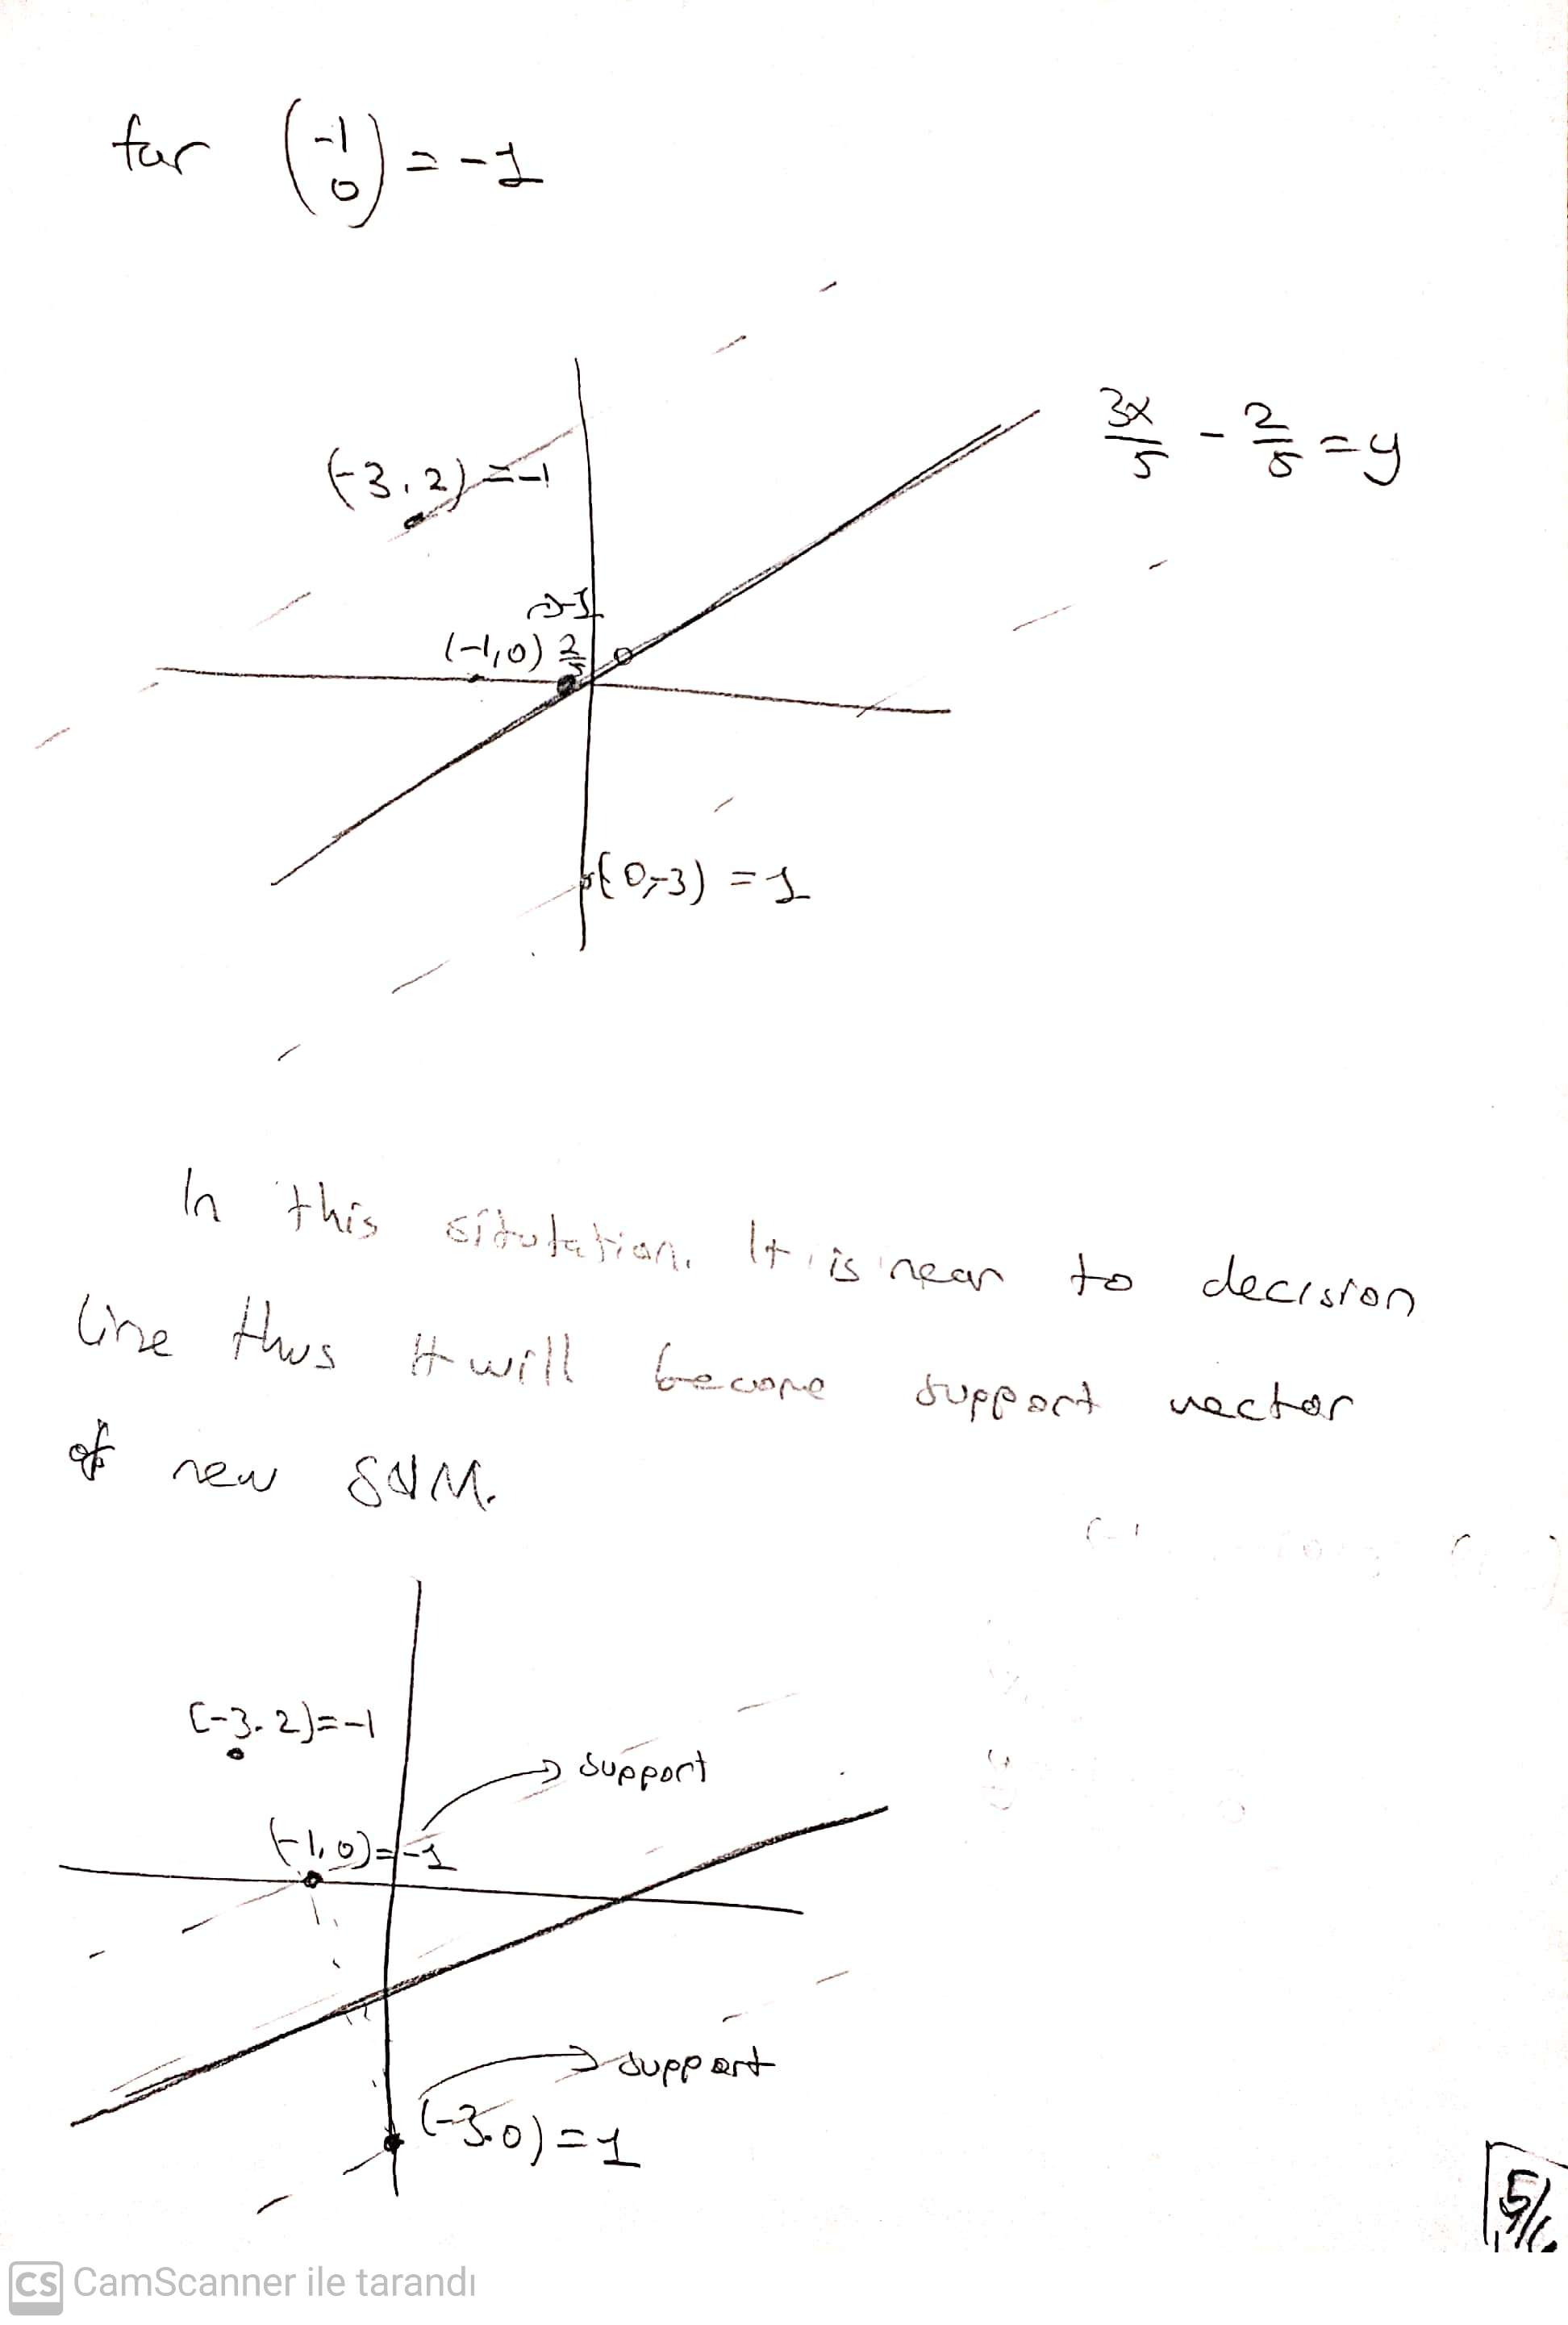 for (-1 0) = -1
3x/5 - 2/5 = y
(-3,2) = -1
= -1
(-1,0) 2/5
(0,-3) = 1
In this situtation. It is near to decision
line thus it will become support vector
of new SVM.
(-3.2) = -1
support
(-1,0) = -1
support
(-3.0) = 1
5/6
CS CamScanner ile tarandı